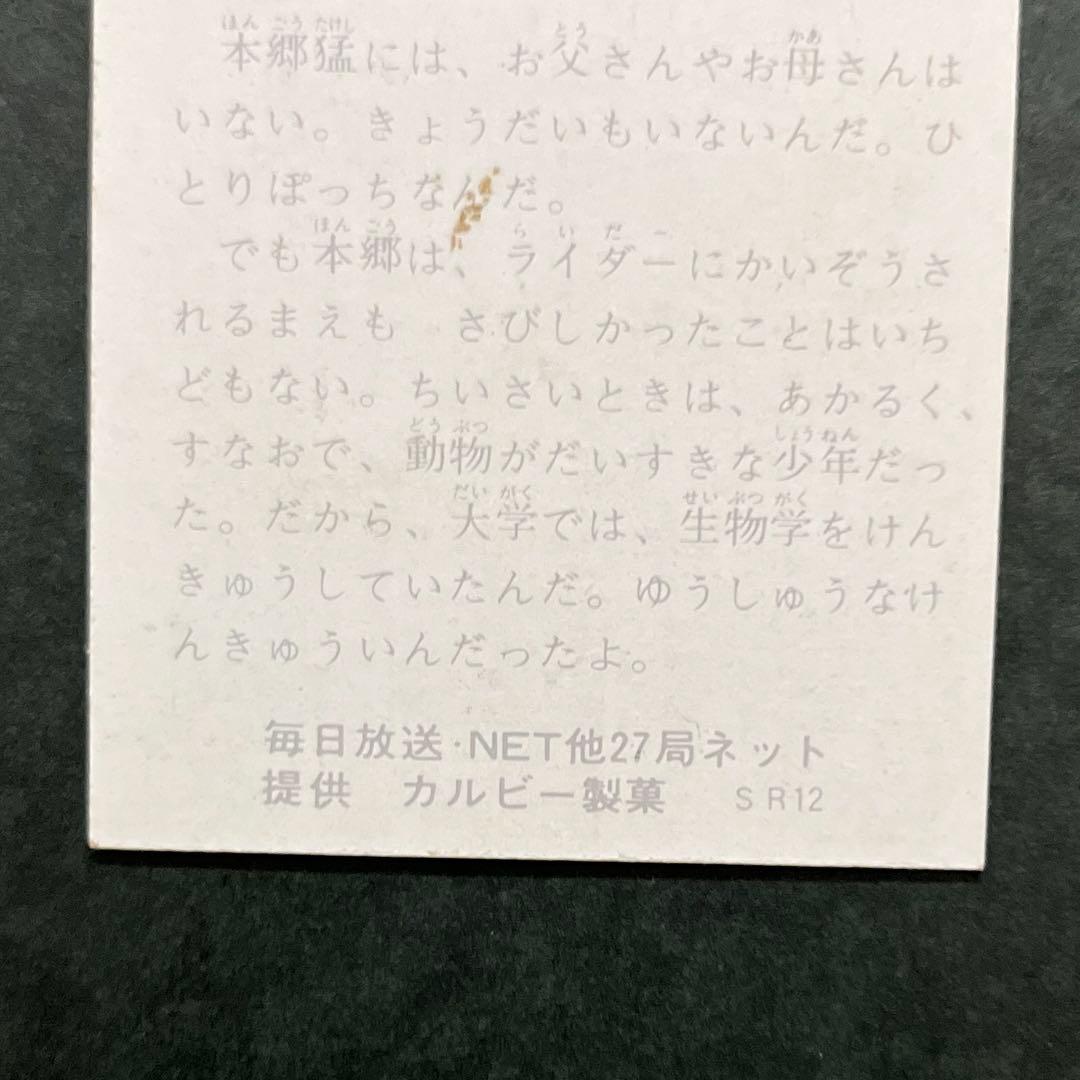 本郷猛には、お父さんやお母さんは
いない。きょうだいもいないんだ。ひ
とりぽっちなんだ。
でも本郷は、ライダーにかいぞうさ
れるまえも　さびしかったことはいち
どもない。ちいさいときは、あかるく、
すなおで、動物がだいすきな少年だっ
た。だから、大学では、生物学をけん
きゅうしていたんだ。ゆうしゅうなけ
んきゅういんだったよ。
毎日放送・NET他27局ネット
提供　カルビー製菓　SR12